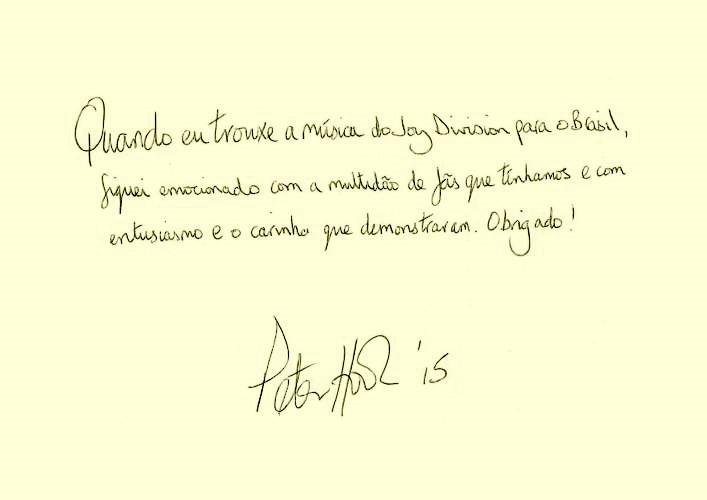 Quando eu trouxe a música do Joy Division para o Brasil,
fiquei emocionado com a multidão de fãs que tínhamos e com
entusiasmo e o carinho que demonstraram. Obrigado!
Peter Hook '15